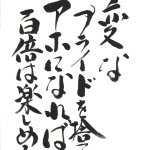 変な
プライドを捨て
アホになれば
百倍は楽しめる